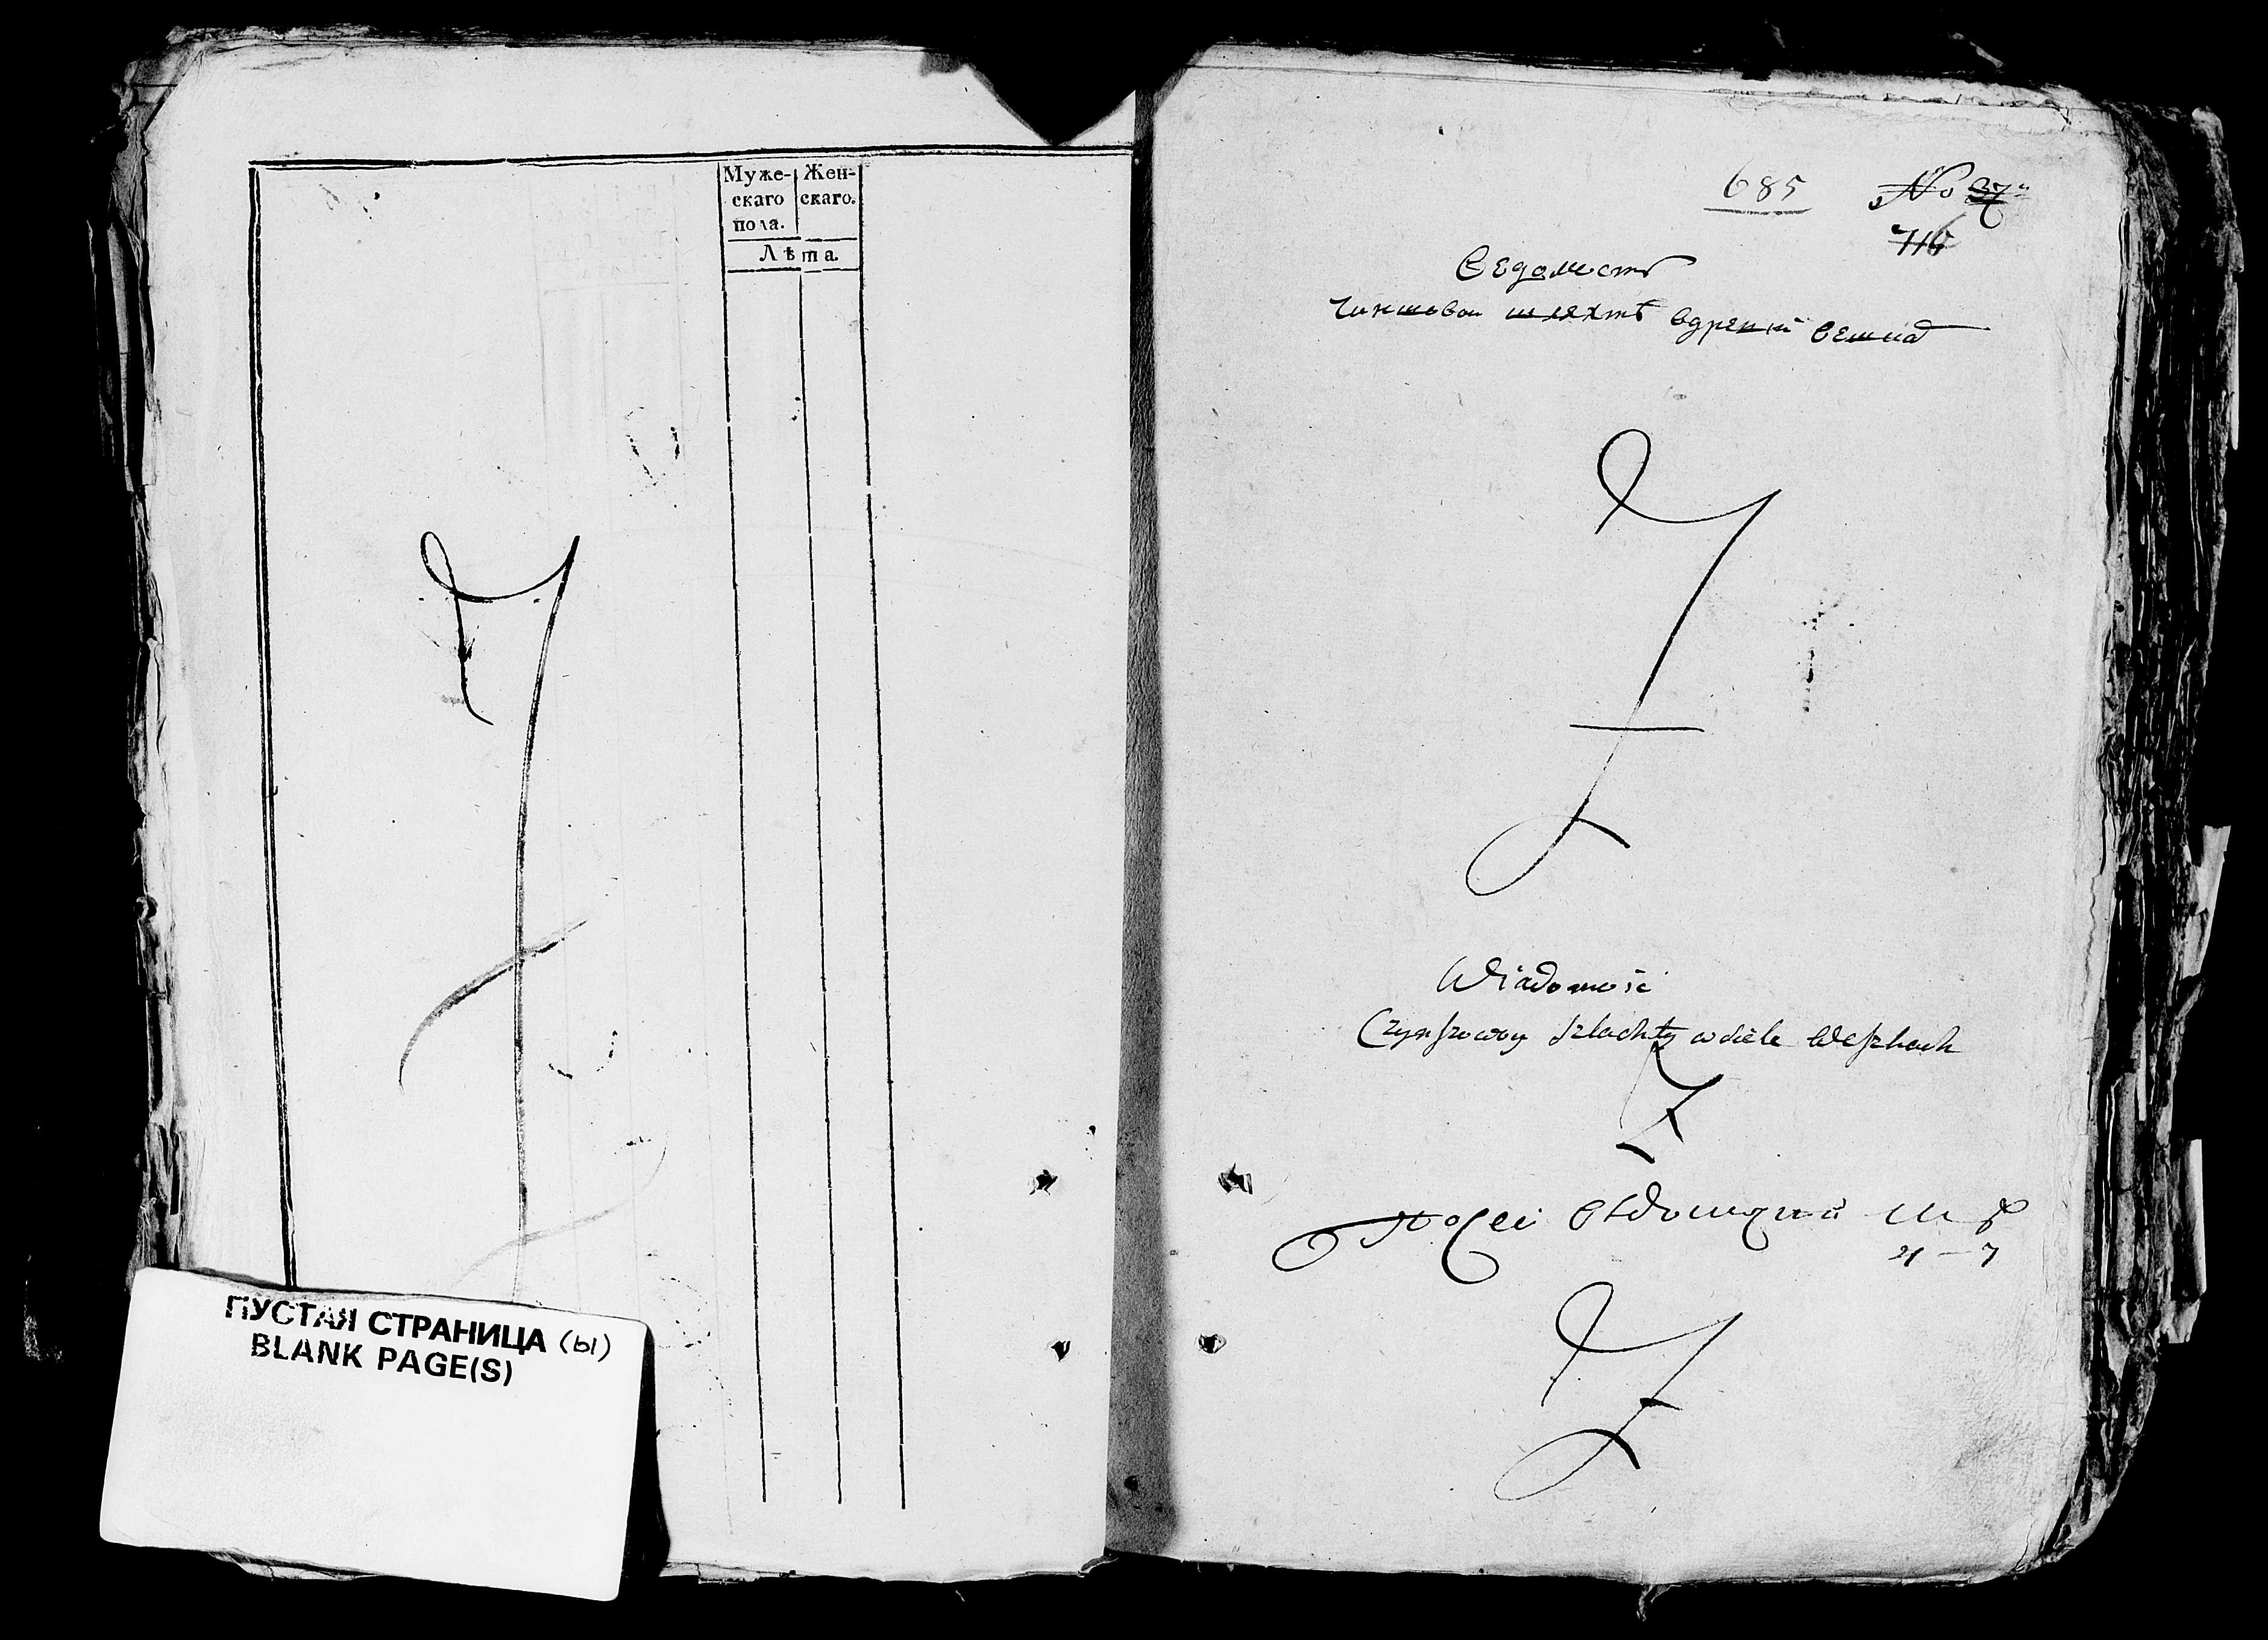 Муже-
скаго
пола.
Жен-
скаго.
Лѣта.
ПУСТАЯ СТРАНИЦА (Ы)
BLANK PAGE(S)
685 No 37
716
Ведомость
Чиншовои шляхтѣ
Wiadomość
Czynszowey Szlachty w siele Weszkach
По сеи
21 — 7